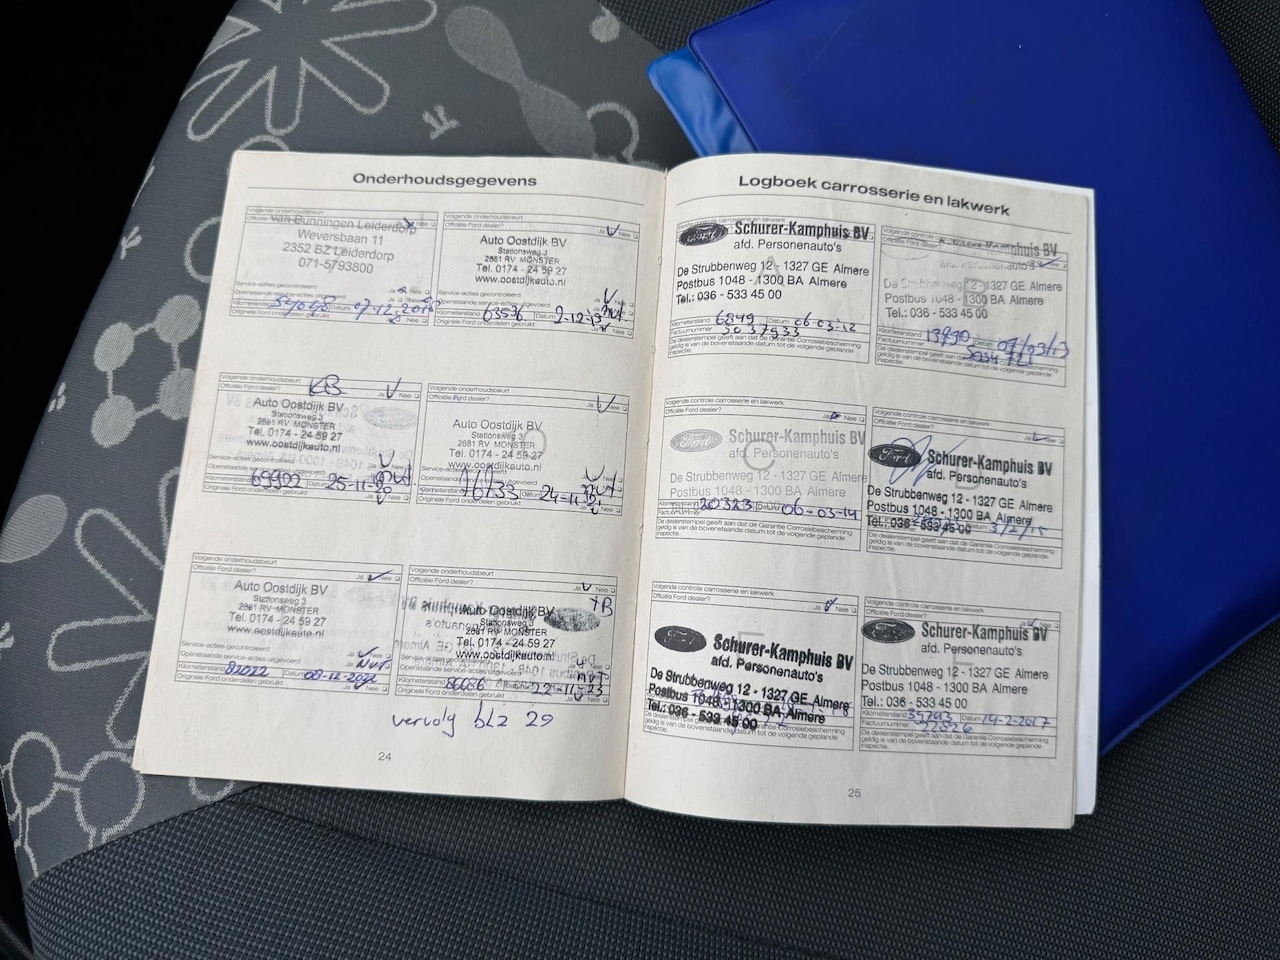 Onderhoudsgegevens
Volgende onderhoudsbeurt
Officiële Ford dealer? Ja Nee
Van Bunningen Leiderdorp
Weversbaan 11
2352 BZ Leiderdorp
071-5793800
Service-acties gecontroleerd
Openstaande service-acties uitgevoerd
Datum 07-12-2018
Originele Ford onderdelen gebruikt
Volgende onderhoudsbeurt
Officiële Ford dealer? Ja Nee
Auto Oostdijk BV
Stationsweg 3
2681 RV MONSTER
Tel. 0174 - 24 59 27
www.oostdijkauto.nl
Service-acties gecontroleerd
Openstaande service-acties uitgevoerd
Kilometerstand 63536 Datum 2-12-19
Originele Ford onderdelen gebruikt Ja Nee
Volgende onderhoudsbeurt
KB
Officiële Ford dealer? Ja Nee
Auto Oostdijk BV
Stationsweg 3
2681 RV MONSTER
Tel. 0174 - 24 59 27
www.oostdijkauto.nl
Service-acties gecontroleerd
69902 25-11-20
Originele Ford onderdelen gebruikt
Volgende onderhoudsbeurt
Officiële Ford dealer? Ja Nee
Auto Oostdijk BV
Stationsweg 3
2681 RV MONSTER
Tel. 0174 - 24 59 27
www.oostdijkauto.nl
Kilometerstand 76133 Datum 24-11-21
Originele Ford onderdelen gebruikt
Volgende onderhoudsbeurt
Officiële Ford dealer? Ja Nee
Auto Oostdijk BV
Stationsweg 3
2681 RV MONSTER
Tel. 0174 - 24 59 27
www.oostdijkauto.nl
Service-acties gecontroleerd
Openstaande service-acties uitgevoerd nvt
Kilometerstand 82022 Datum 08-12-2022
Originele Ford onderdelen gebruikt Ja Nee
Volgende onderhoudsbeurt
Officiële Ford dealer? Ja Nee
Auto Oostdijk BV
Stationsweg 3
2681 RV MONSTER
Tel. 0174 - 24 59 27
www.oostdijkauto.nl
Openstaande service-acties uitgevoerd nvt
Kilometerstand 86686 22-11-23
Originele Ford onderdelen gebruikt
vervolg blz 29
24
Logboek carrosserie en lakwerk
Ford Schurer-Kamphuis BV
afd. Personenauto's
A
De Strubbenweg 12 - 1327 GE Almere
Postbus 1048 - 1300 BA Almere
Tel.: 036 - 533 45 00
Kilometerstand 6849 Datum 06-03-12
Factuurnummer 3037933
De dealerstempel geeft aan dat de Garantie Corrosiebescherming
geldig is van bovenstaande datum tot de volgende geplande
inspectie.
Volgende controle carrosserie en lakwerk
Officiële Ford dealer?
Schurer-Kamphuis BV
afd. Personenauto's
De Strubbenweg 12 - 1327 GE Almere
Postbus 1048 - 1300 BA Almere
Tel.: 036 - 533 45 00
Kilometerstand 13990 Datum 07/03/13
Factuurnummer
De dealerstempel geeft aan dat de Garantie Corrosiebescherming
geldig is van bovenstaande datum tot de volgende geplande
inspectie.
Volgende controle carrosserie en lakwerk
Officiële Ford dealer? Ja Nee
Ford Schurer-Kamphuis BV
C
afd. Personenauto's
De Strubbenweg 12 - 1327 GE Almere
Postbus 1048 - 1300 BA Almere
Kilometerstand 20323 06-03-14
Factuurnummer
De dealerstempel geeft aan dat de Garantie Corrosiebescherming
geldig is van bovenstaande datum tot de volgende geplande
inspectie.
Volgende controle carrosserie en lakwerk
Officiële Ford dealer?
Ford Schurer-Kamphuis BV
afd. Personenauto's
D
De Strubbenweg 12 - 1327 GE Almere
Postbus 1048 - 1300 BA Almere
Tel.: 036 - 533 45 00 Datum 3/2/15
De dealerstempel geeft aan dat de Garantie Corrosiebescherming
geldig is van bovenstaande datum tot de volgende geplande
inspectie.
Volgende controle carrosserie en lakwerk
Officiële Ford dealer? Ja Nee
Ford Schurer-Kamphuis BV
afd. Personenauto's
De Strubbenweg 12 - 1327 GE Almere
Postbus 1048 - 1300 BA Almere
Tel.: 036 - 533 45 00
inspectie.
Volgende controle carrosserie en lakwerk
Officiële Ford dealer?
Ford Schurer-Kamphuis BV
afd. Personenauto's
De Strubbenweg 12 - 1327 GE Almere
Postbus 1048 - 1300 BA Almere
Tel.: 036 - 533 45 00
Kilometerstand Datum 14-2-2017
Factuurnummer
De dealerstempel geeft aan dat de Garantie Corrosiebescherming
geldig is van bovenstaande datum tot de volgende geplande
inspectie.
25